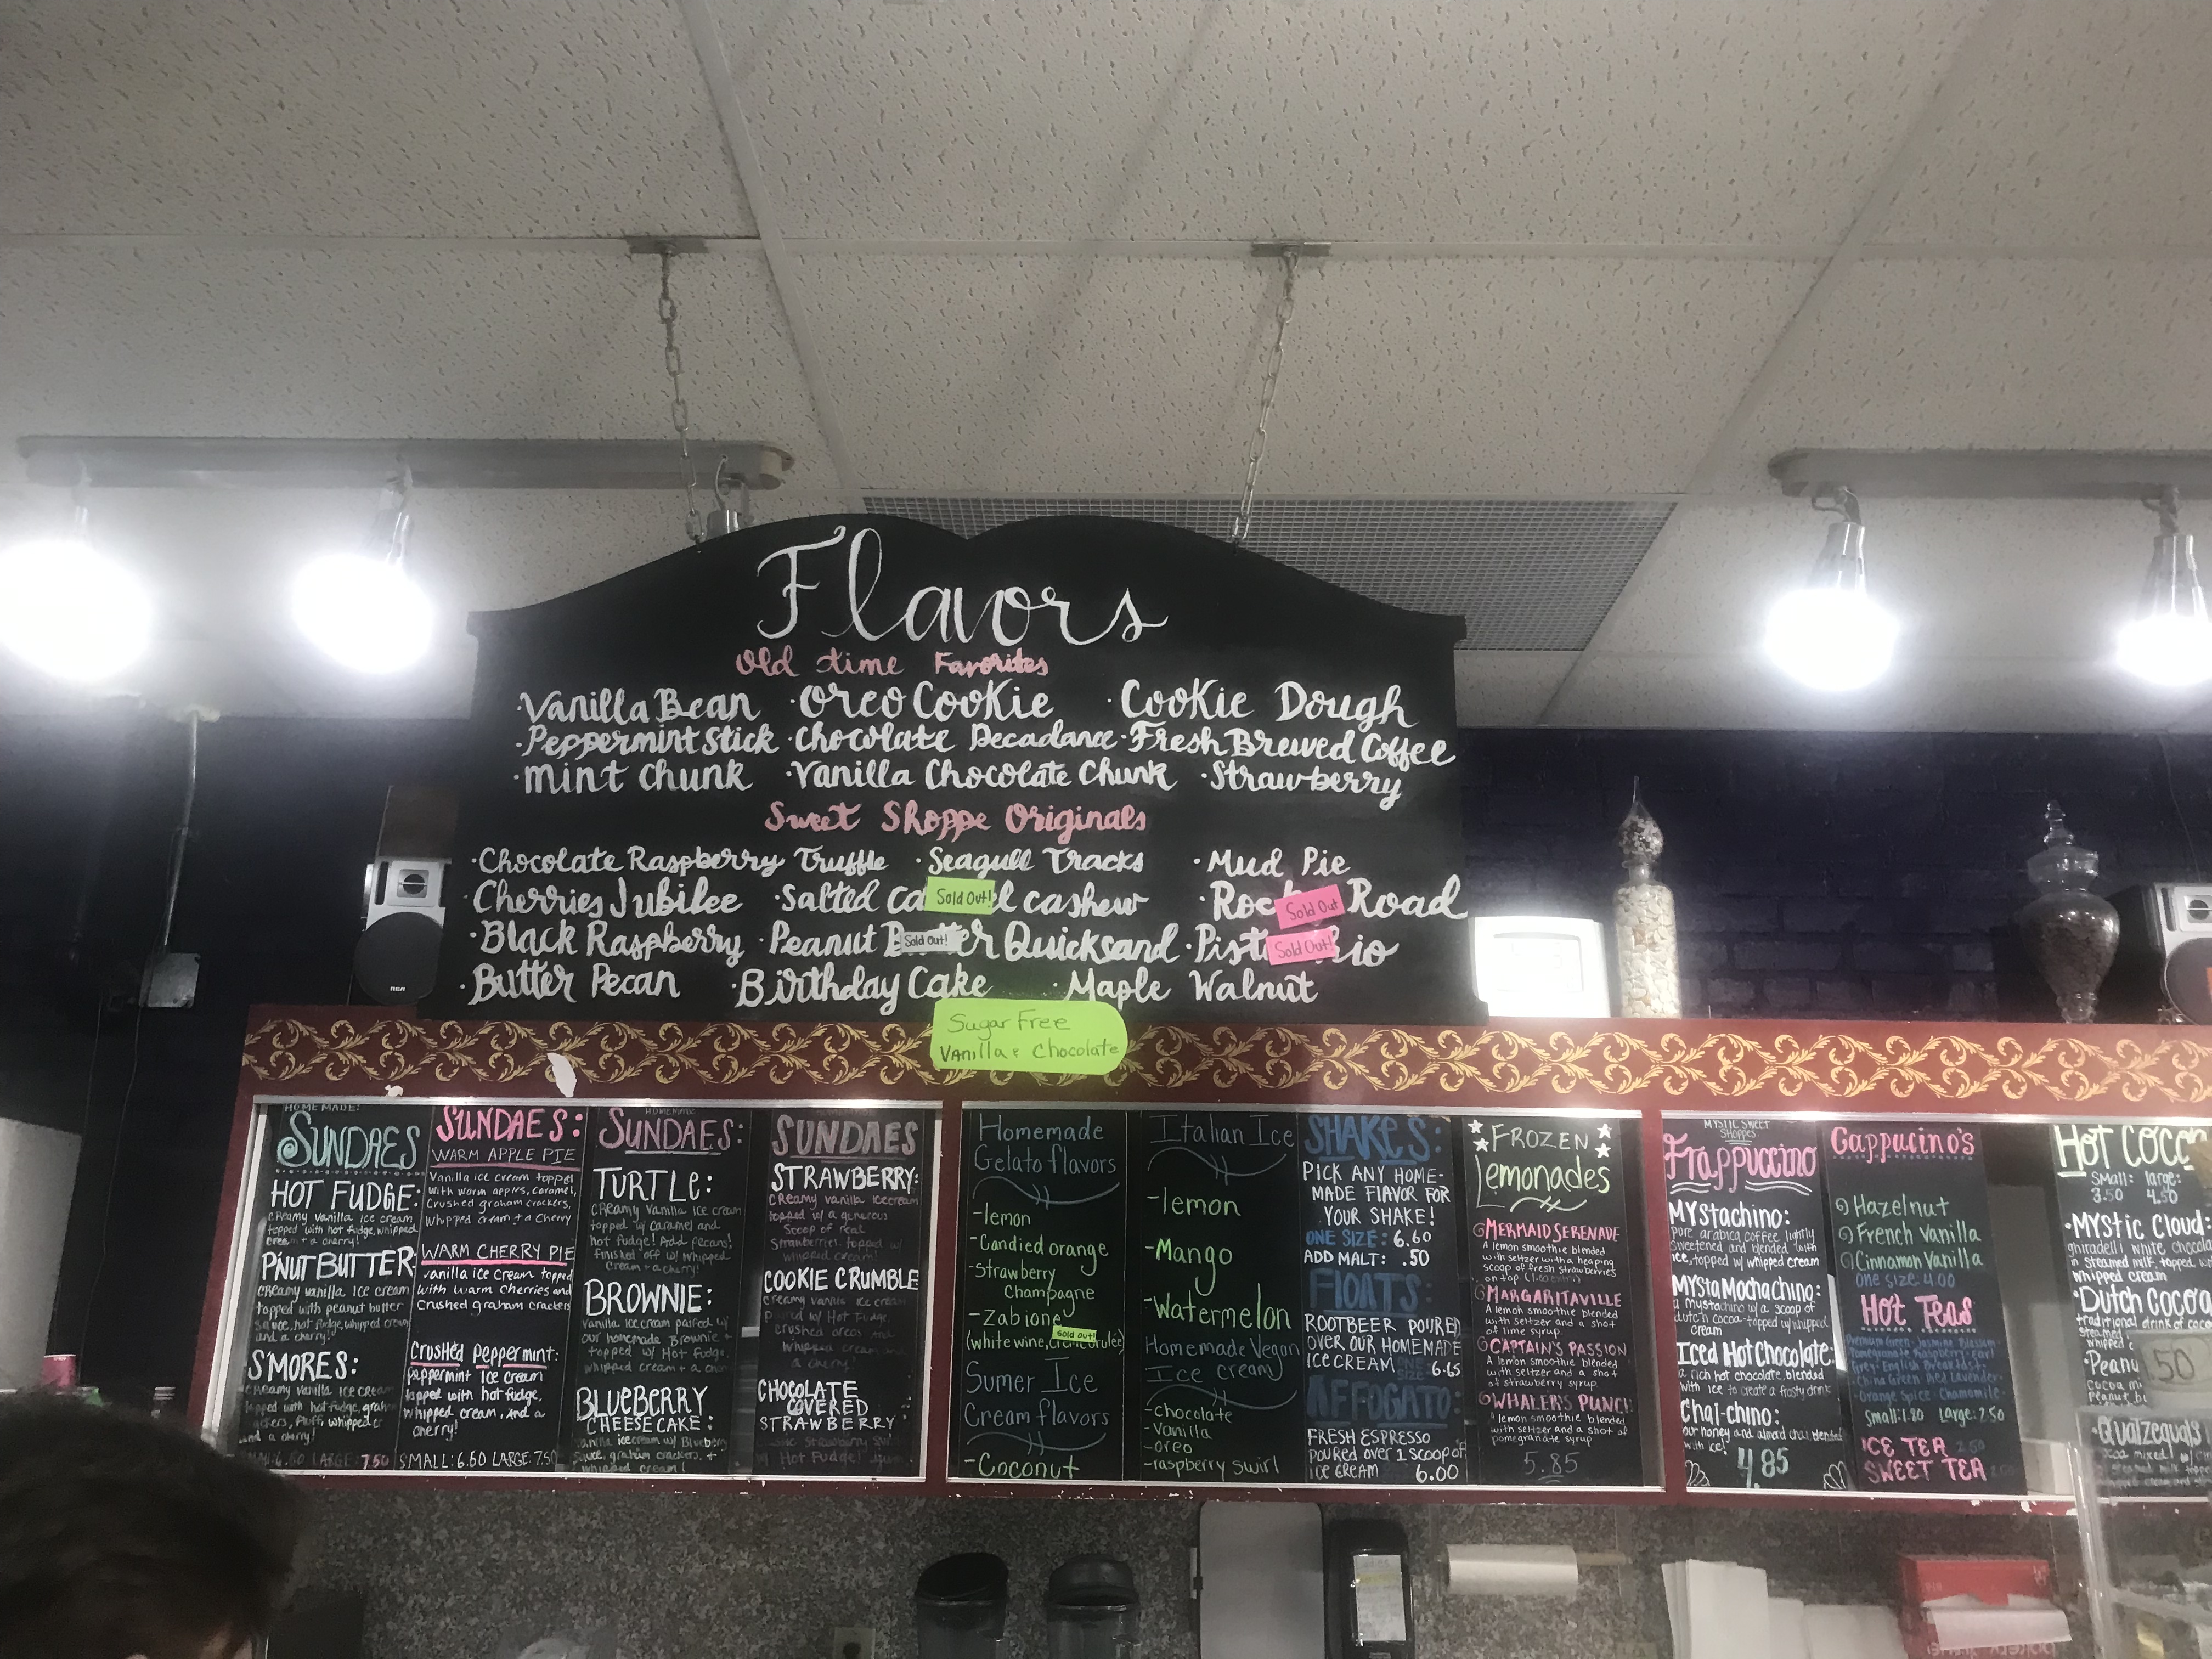 Flavors
Old time Favorites
·Vanilla Bean ·Oreo Cookie ·Cookie Dough
·Peppermint Stick ·Chocolate Decadance ·Fresh Brewed Coffee
·mint chunk ·Vanilla Chocolate Chunk ·Strawberry
Sweet Shoppe Originals
·Chocolate Raspberry Truffle ·Seagull Tracks ·Mud Pie
·Cherries Jubilee ·Salted ca Sold Out! l cashew ·Roc Sold Out Road
·Black Raspberry ·Peanut B Sold Out! er Quicksand ·Pist Sold Out! io
·Butter Pecan ·Birthday Cake ·Maple Walnut
Sugar Free
Vanilla & Chocolate
HOMEMADE:
SUNDAES
HOT FUDGE:
creamy vanilla ice cream
topped with hot fudge, whipped
cream + a cherry!
P'NUT BUTTER:
creamy vanilla ice cream
topped with peanut butter
sauce, hot fudge, whipped cream
and a cherry!
S'MORES:
creamy vanilla ice cream
topped with hot fudge, graham
fluff, whipped
and a cherry!
LARGE: 7.50
SUNDAES:
WARM APPLE PIE
Vanilla ice cream topped
with warm apples, caramel,
crushed graham crackers,
whipped cream + a cherry
WARM CHERRY PIE
vanilla ice cream topped
with warm cherries and
crushed graham crackers
Crushed Peppermint:
peppermint ice cream
topped with hot fudge,
whipped cream, and a
cherry!
SMALL: 6.50 LARGE: 7.50
HOMEMADE
SUNDAES:
TURTLE:
creamy vanilla ice cream
topped w/ caramel and
hot fudge! Add pecans!
finished off w/ whipped
cream + a cherry!
BROWNIE:
vanilla ice cream paired w/
our homemade Brownie +
topped w/ Hot fudge,
whipped cream + a
BLUEBERRY
CHEESECAKE:
vanilla ice cream w/ Blueberry
sauce, graham crackers, +
whipped cream!
SUNDAES
STRAWBERRY:
creamy vanilla ice cream
topped w/ a generous
scoop of real
strawberries, topped w/
whipped cream!
COOKIE CRUMBLE
creamy vanilla ice cream
paired w/ Hot Fudge,
crushed oreos and
whipped cream and
a cherry!
CHOCOLATE
COVERED
STRAWBERRY
Hot Fudge!
Homemade
Gelato flavors
-lemon
-Candied orange
-Strawberry
Champagne
-Zabione
Sold out!
(white wine,
Sumer Ice
Cream flavors
-Coconut
Italian Ice
-lemon
-Mango
-Watermelon
Homemade Vegan
Ice creamy
-chocolate
-Vanilla
-oreo
-raspberry swirl
SHAKES:
PICK ANY HOME-
MADE FLAVOR FOR
YOUR SHAKE!
ONE SIZE: 6.60
ADD MALT: .50
FLOATS:
ROOTBEER POURED
OVER OUR HOMEMADE
ICE CREAM ONE SIZE 6.65
AFFOGATO:
FRESH ESPRESSO
POURED OVER 1 SCOOP OF
ICE CREAM 6.00
FROZEN
Lemonades
MERMAID SERENADE
A lemon smoothie blended
with seltzer with a heaping
scoop of fresh strawberries
on top
MARGARITAVILLE
A lemon smoothie blended
with seltzer and a shot
of lime syrup
CAPTAIN'S PASSION
A lemon smoothie blended
with seltzer and a shot
of strawberry syrup
WHALER'S PUNCH
A lemon smoothie blended
with seltzer and a shot of
pomegranate syrup
5.85
MYSTIC SWEET
SHOPPES
Frappuccino
MYstachino:
pure arabica coffee, lightly
sweetened and blended with
ice, topped w/ whipped cream
MYsta Mochachino:
a mystachino w/ a scoop of
dutch cocoa-topped w/ whipped
cream
Iced Hot Chocolate:
a rich hot chocolate, blended
with ice to create a frosty drink
Chai-chino:
our honey and almond chai blended
with ice!
4.85
Cappucino's
Hazelnut
French vanilla
Cinnamon vanilla
one size: 4.00
Hot Teas
Small: 1.80 Large: 2.50
ICE TEA 2.50
SWEET TEA
Hot Coco
Small: large:
3.50 4.50
·Mystic Cloud:
ghiradelli white chocola
in steamed milk, topped w
whipped cream
·Dutch Cocoa
traditional drink of coco
steamed
·Peanu
50